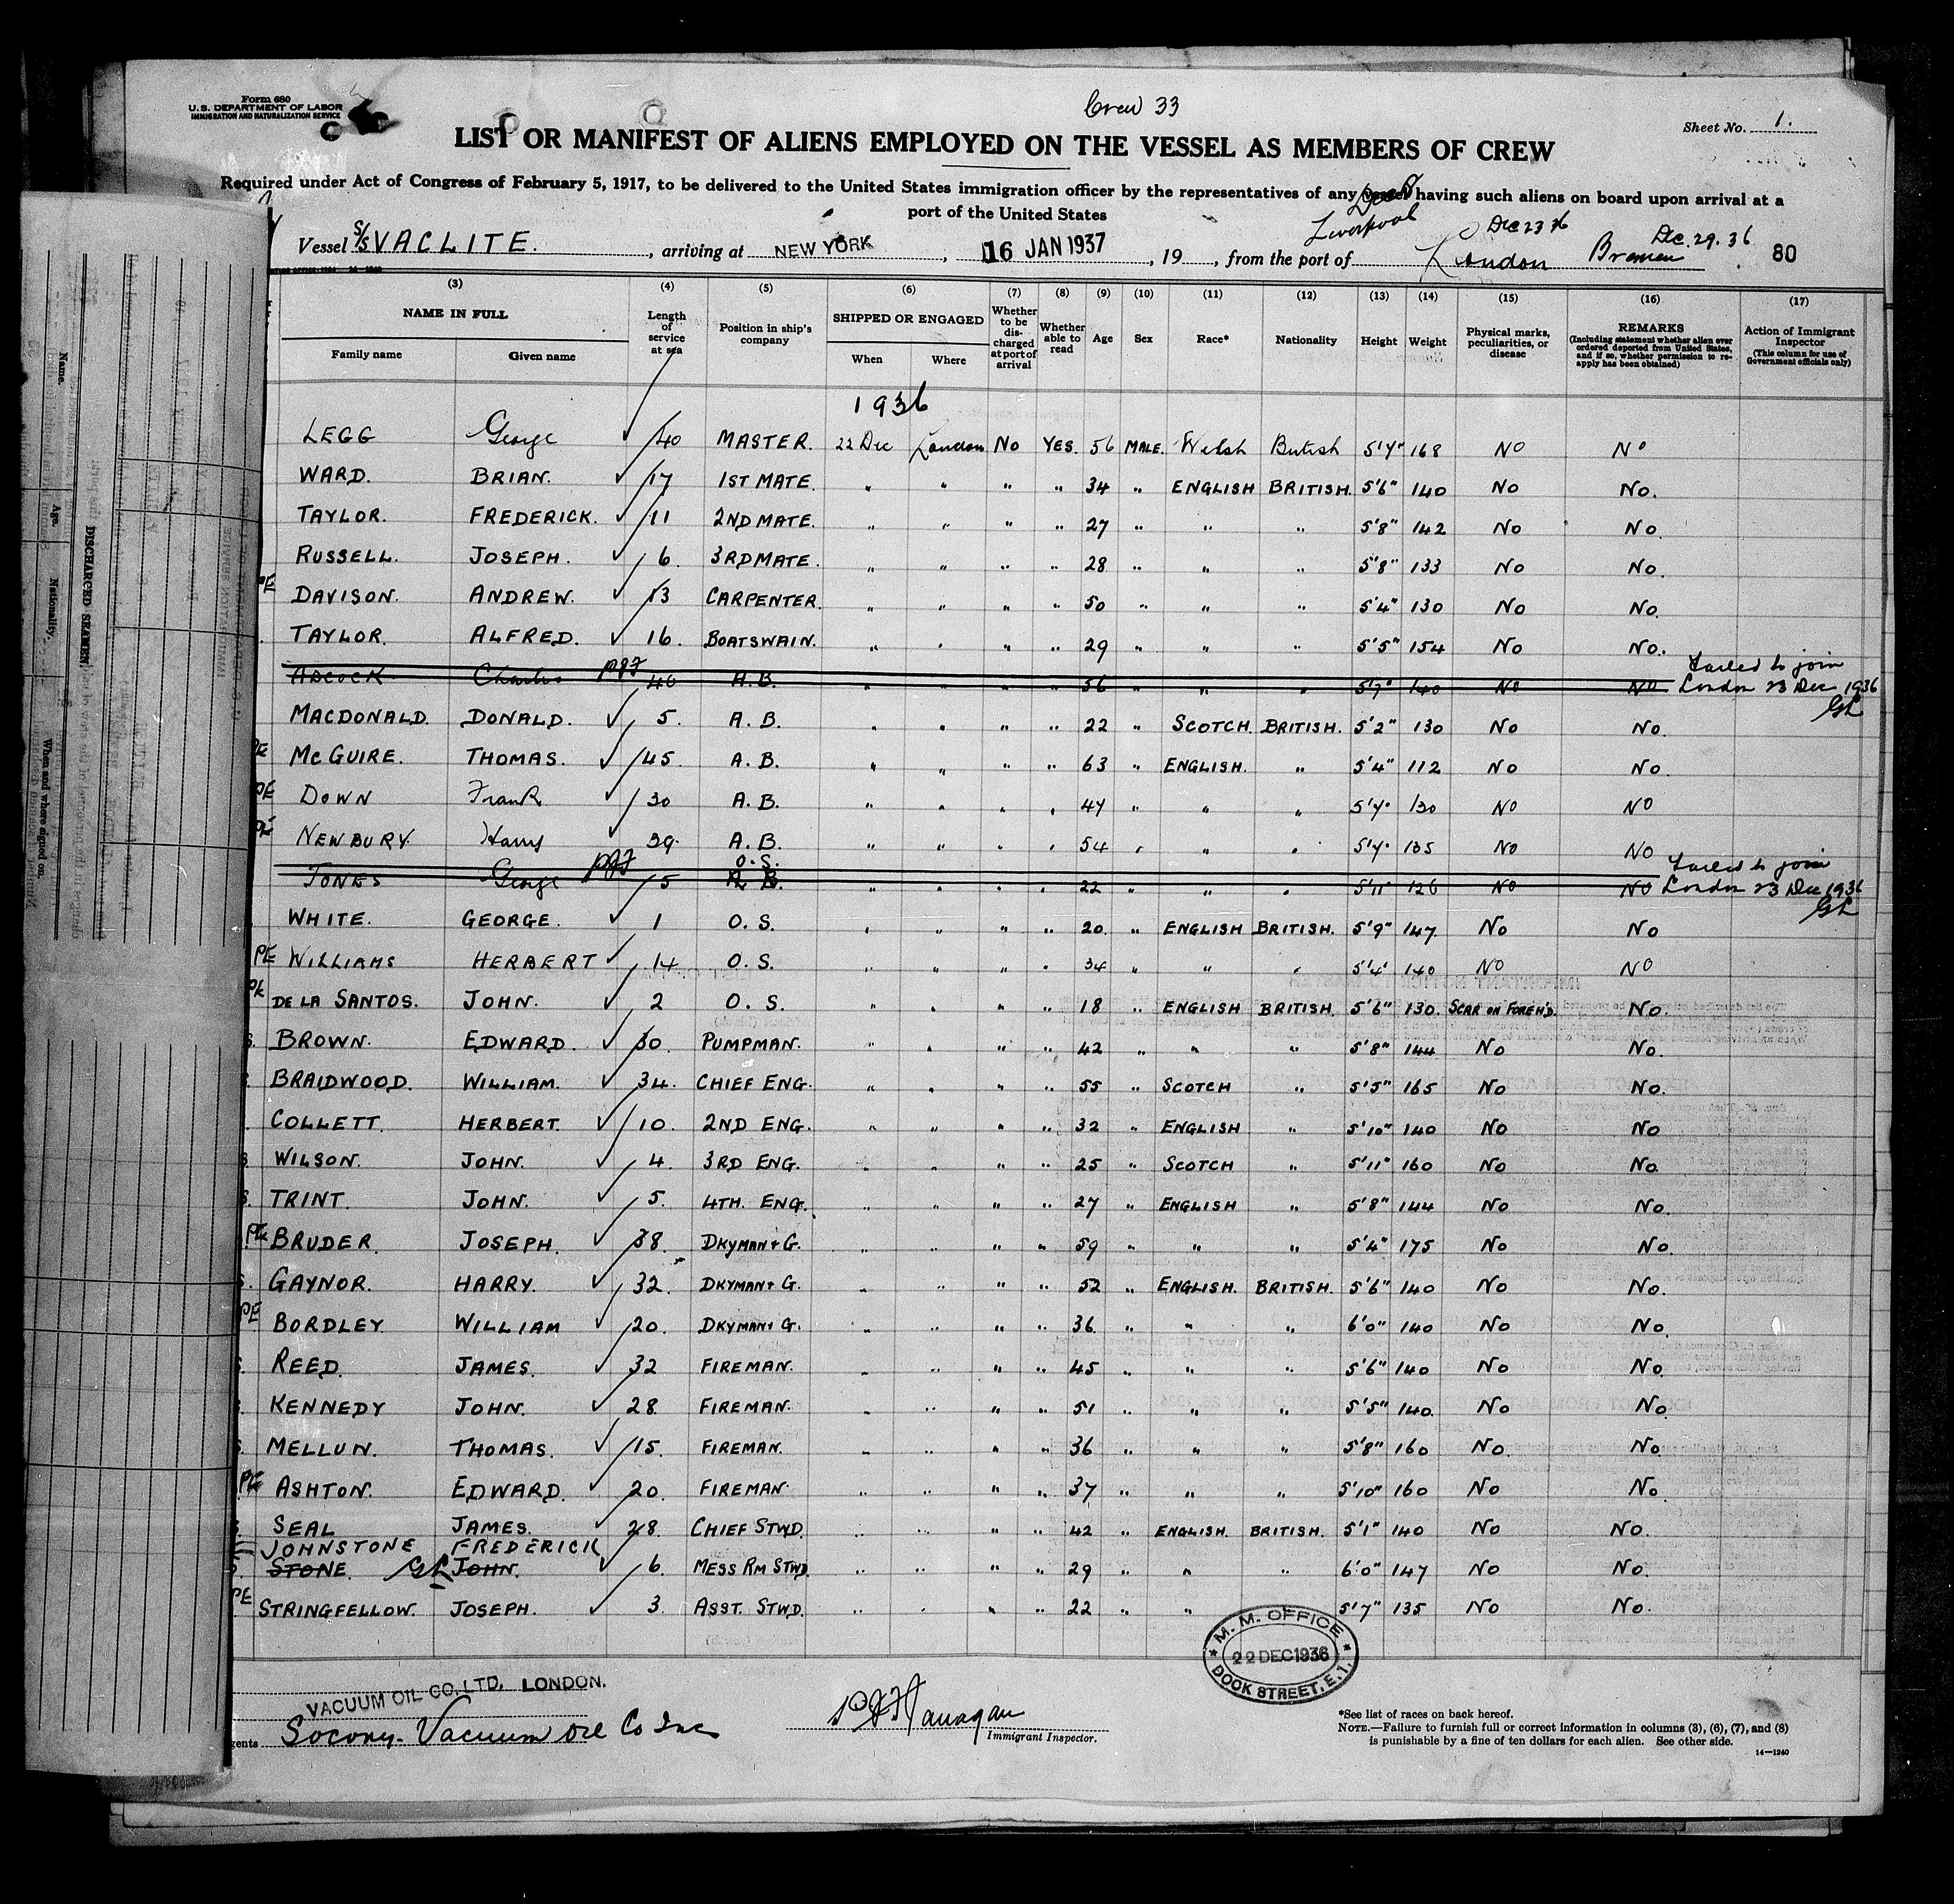 Form 680
U.S. DEPARTMENT OF LABOR
IMMIGRATION AND NATURALIZATION SERVICE
Crew 33
Sheet No. 1.
LIST OR MANIFEST OF ALIENS EMPLOYED ON THE VESSEL AS MEMBERS OF CREW
Required under Act of Congress of February 5, 1917, to be delivered to the United States immigration officer by the representatives of any vessel having such aliens on board upon arrival at a
port of the United States
Liverpool Dec 23 36 Dec. 29. 36
Vessel S/S VACLITE. , arriving at NEW YORK , 16 JAN 1937 , 19 , from the port of London Bremen 80
(3) (4) (5) (6) (7) (8) (9) (10) (11) (12) (13) (14) (15) (16) (17)
NAME IN FULL Family name Given name Length of service at sea Position in ship's company SHIPPED OR ENGAGED When Where Whether to be discharged at port of arrival Whether able to read Age Sex Race* Nationality Height Weight Physical marks, peculiarities, or disease REMARKS (Including statement whether alien ever ordered deported from United States, and if so, whether permission to reapply has been obtained) Action of Immigrant Inspector (This column for use of Government officials only)
1936
LEGG George 40 MASTER. 22 Dec London No YES. 56 MALE. Welsh British 5'7" 168 NO NO
WARD. BRIAN. 17 1ST MATE. " " " " 34 " ENGLISH BRITISH. 5'6" 140 No No.
TAYLOR. FREDERICK. 11 2ND MATE. " " " " 27 " " " 5'8" 142 No No.
RUSSELL. JOSEPH. 6. 3RD MATE. " " " " 28 " " " 5'8" 133 No No.
PE DAVISON. ANDREW. 13 CARPENTER. " " " " 50 " " " 5'4" 130 No No.
TAYLOR. ALFRED. 16. BOATSWAIN. " " " " 29 " " " 5'5" 154 No No.
ADCOCK Charles 40 A.B. " " " " 56 " " " 5'7" 140 No NO Failed to join London 23 Dec 1936 GL
MACDONALD. DONALD. 5. A.B. " " " " 22 " SCOTCH. BRITISH. 5'2" 130 No No.
PE McGUIRE. THOMAS. 45. A.B. " " " " 63 " ENGLISH. " 5'4" 112 No No.
PE DOWN Frank 30 A.B. " " " " 47 " " " 5'7" 130 NO NO
PE NEWBURY. Harry 39. A.B. " " " " 54 " " " 5'7" 135 No NO
JONES George 5 O.S. " " " " 22 " " " 5'11" 126 No NO Failed to join London 23 Dec 1936 GL
WHITE. GEORGE. 1 O.S. " " " " 20. " ENGLISH BRITISH. 5'9" 147. No No
PE WILLIAMS HERBERT 14 O.S. " " " " 34 " " " 5'4" 140 NO NO
PE DE LA SANTOS. JOHN. 2 O.S. " " " " 18 " ENGLISH BRITISH. 5'6" 130. SCAR ON FOREH'D. No.
BROWN. EDWARD. 30. PUMPMAN. " " " " 42 " " " 5'8" 144 No No.
BRAIDWOOD. WILLIAM. 34. CHIEF ENG. " " " " 55 " SCOTCH " 5'5" 165 No No.
COLLETT. HERBERT. 10. 2ND ENG. " " " " 32 " ENGLISH " 5'10" 140 No No
WILSON. JOHN. 4. 3RD ENG. " " " " 25 " SCOTCH " 5'11" 160 No No.
TRINT. JOHN. 5. 4TH. ENG. " " " " 27 " ENGLISH " 5'8" 144 No No.
PE BRUDER. JOSEPH. 38. DKYMAN & G. " " " " 59 " " " 5'4" 175 No No.
GAYNOR. HARRY. 32. DKYMAN & G. " " " " 52 " ENGLISH. BRITISH. 5'6" 140 No No.
PE BORDLEY WILLIAM 20. DKYMAN & G. " " " " 36. " " " 6'0" 140 No No.
REED. JAMES. 32 FIREMAN. " " " " 45 " " " 5'6" 140 No No.
KENNEDY JOHN. 28. FIREMAN. " " " " 51 " " " 5'5" 140. No No.
MELLUN. THOMAS. 15. FIREMAN. " " " " 36 " " " 5'8" 160 No. No.
PE ASHTON. EDWARD. 20. FIREMAN. " " " " 37 " " " 5'10" 160 No No.
SEAL JAMES. 28. CHIEF STWD. " " " " 42 " ENGLISH. BRITISH. 5'1" 140 No No.
JOHNSTONE FREDERICK
STONE. GL JOHN. 6. MESS RM STWD. " " " " 29 " " " 6'0" 147 No No.
PE STRINGFELLOW. JOSEPH. 3. ASST. STWD. " " " " 22 " " 5'7" 135 No No.
M. M. OFFICE
22 DEC 1936
DOCK STREET, E.1.
VACUUM OIL CO. LTD. LONDON.
Socony-Vacuum Oil Co Inc
Immigrant Inspector.
*See list of races on back hereof.
NOTE.—Failure to furnish full or correct information in columns (3), (6), (7), and (8)
is punishable by a fine of ten dollars for each alien. See other side.
14—1240
Name.
Age.
Nationality.
When and where signed on.
DISCHARGED SEAMEN